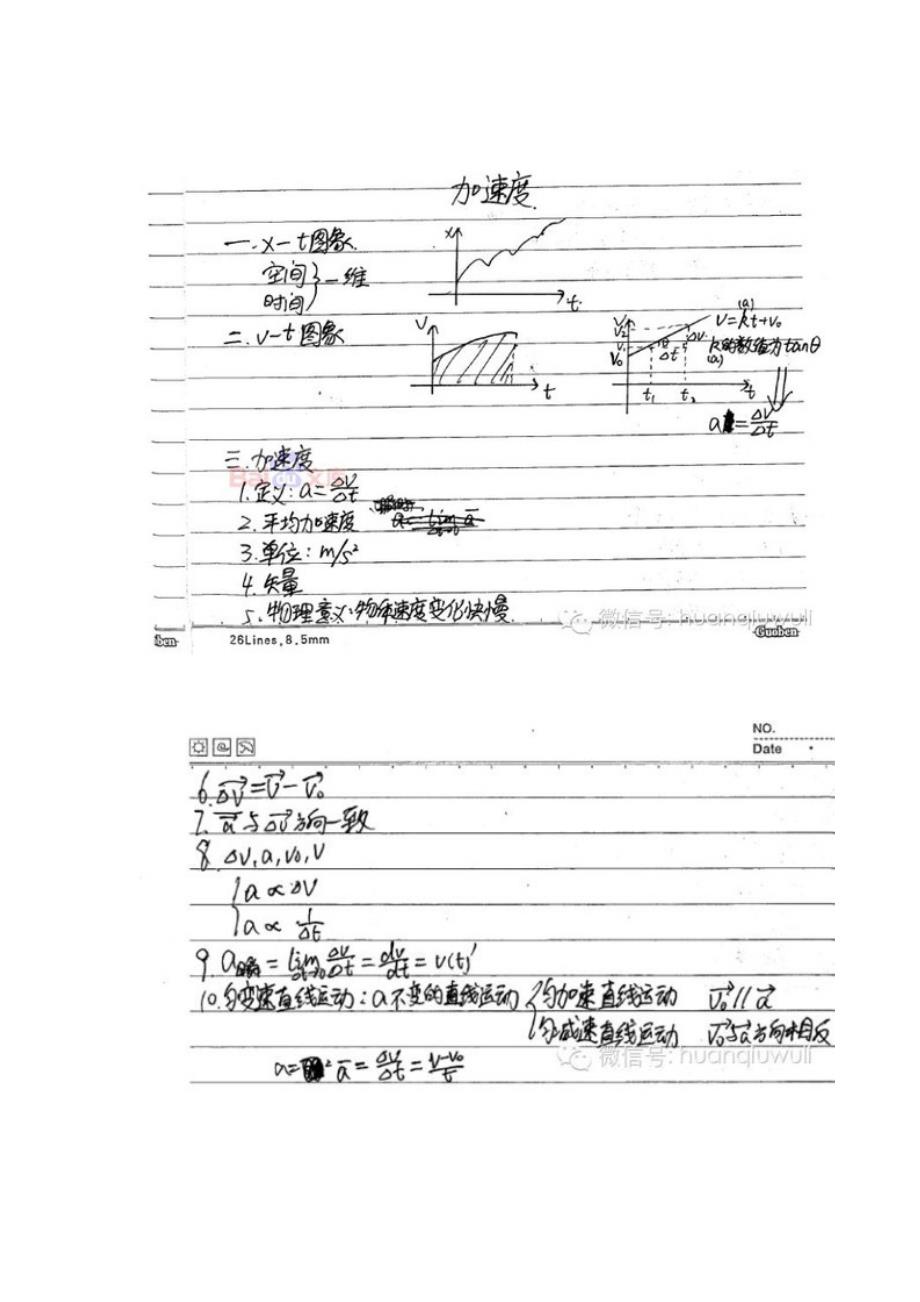 加速度.
一. x-t图象.
空间 } 一维
时间
x
t.
二. v-t图象
V
t
V
V₂
V₁
V₀
θ
Δt
ΔV
t₁ t₂
t
(a)
V=kt+v₀
k的数值为tanθ
(a)
a=ΔV/Δt
三.加速度
Bai du 文库
1.定义: a=ΔV/Δt
2.平均加速度
3.单位: m/s²
4.矢量
5.物理意义:物体速度变化快慢.
微信号: huanqiuwuli
iben
26Lines,8.5mm
Guoben
NO.
Date
6. Δv⃗=v⃗-v⃗₀
7. a⃗与Δv⃗方向一致
8. ΔV,a,v₀,V
{ a∝ΔV
a∝ 1/Δt
9. a瞬 = lim Δt→0 ΔV/Δt = dv/dt = v(t)'
10.匀变速直线运动:a不变的直线运动 { 匀加速直线运动 v⃗₀//a⃗
匀减速直线运动 v⃗₀与a⃗方向相反
微信号: huanqiuwuli
a= a̅ = ΔV/Δt = (v-v₀)/t